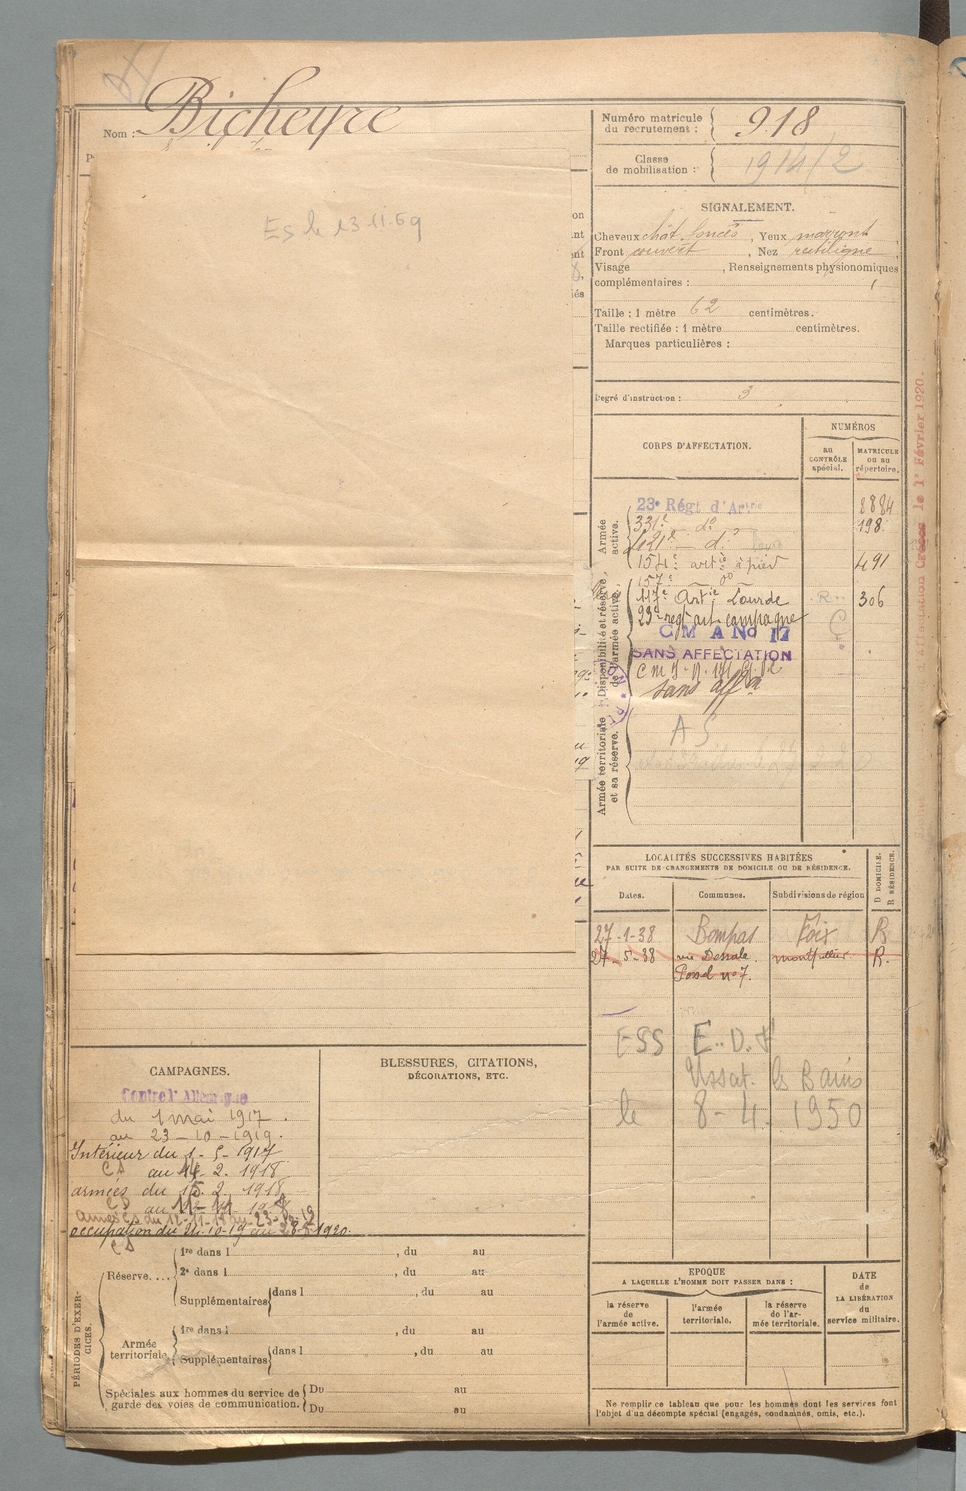 Nom : Bicheyre
Es le 13-11-69
Numéro matricule
du recrutement : 918
Classe
de mobilisation : 1914/2
SIGNALEMENT.
Cheveux chât. foncés, Yeux
Front couvert, Nez rectiligne,
Visage , Renseignements physionomiques
complémentaires :
Taille : 1 mètre 62 centimètres.
Taille rectifiée : 1 mètre centimètres.
Marques particulières :
Degré d'instruction : 3
CORPS D'AFFECTATION.
NUMÉROS
au
CONTRÔLE
spécial.
MATRICULE
ou au
répertoire.
Armée
active.
Disponibilité et réserve
de l'armée active.
Armée territoriale
et sa réserve.
23e Régt d'Artie 8884
331e do 198
121e do
154e artie à pied 491
157e do
117e Artie Lourde R 306
23e reg art campagne
C M A No 17
SANS AFFECTATION
sans affon
A S
d'Affectation Créée le 1er Février 1920.
LOCALITÉS SUCCESSIVES HABITÉES
PAR SUITE DE CHANGEMENTS DE DOMICILE OU DE RÉSIDENCE.
Dates. Communes. Subdivisions de région
D DOMICILE.
R RÉSIDENCE.
27-1-38 Bompas Foix R
27-5-38 montpellier R.
no 7.
ESS E.D.F
Ussat les Bains
le 8-4-1950
CAMPAGNES.
Contre l'Allemagne
du 1 mai 1917.
au 23-10-1919.
Intérieur du 1-5-1917
CS au 14.2.1918
armées du 15.2.1918
occupation du 24.10.19 au 28.5.1920.
CS
BLESSURES, CITATIONS,
DÉCORATIONS, ETC.
PÉRIODES D'EXERCICES.
Réserve....
1re dans l , du au
2e dans l , du au
Supplémentaires dans l , du au
Armée
territoriale
1re dans l , du au
Supplémentaires dans l , du au
Spéciales aux hommes du service de
garde des voies de communication.
Du au
Du au
EPOQUE
A LAQUELLE L'HOMME DOIT PASSER DANS :
la réserve
de
l'armée active.
l'armée
territoriale.
la réserve
de l'ar-
mée territoriale.
DATE
de
LA LIBÉRATION
du
service militaire.
Ne remplir ce tableau que pour les hommes dont les services font
l'objet d'un décompte spécial (engagés, condamnés, omis, etc.).